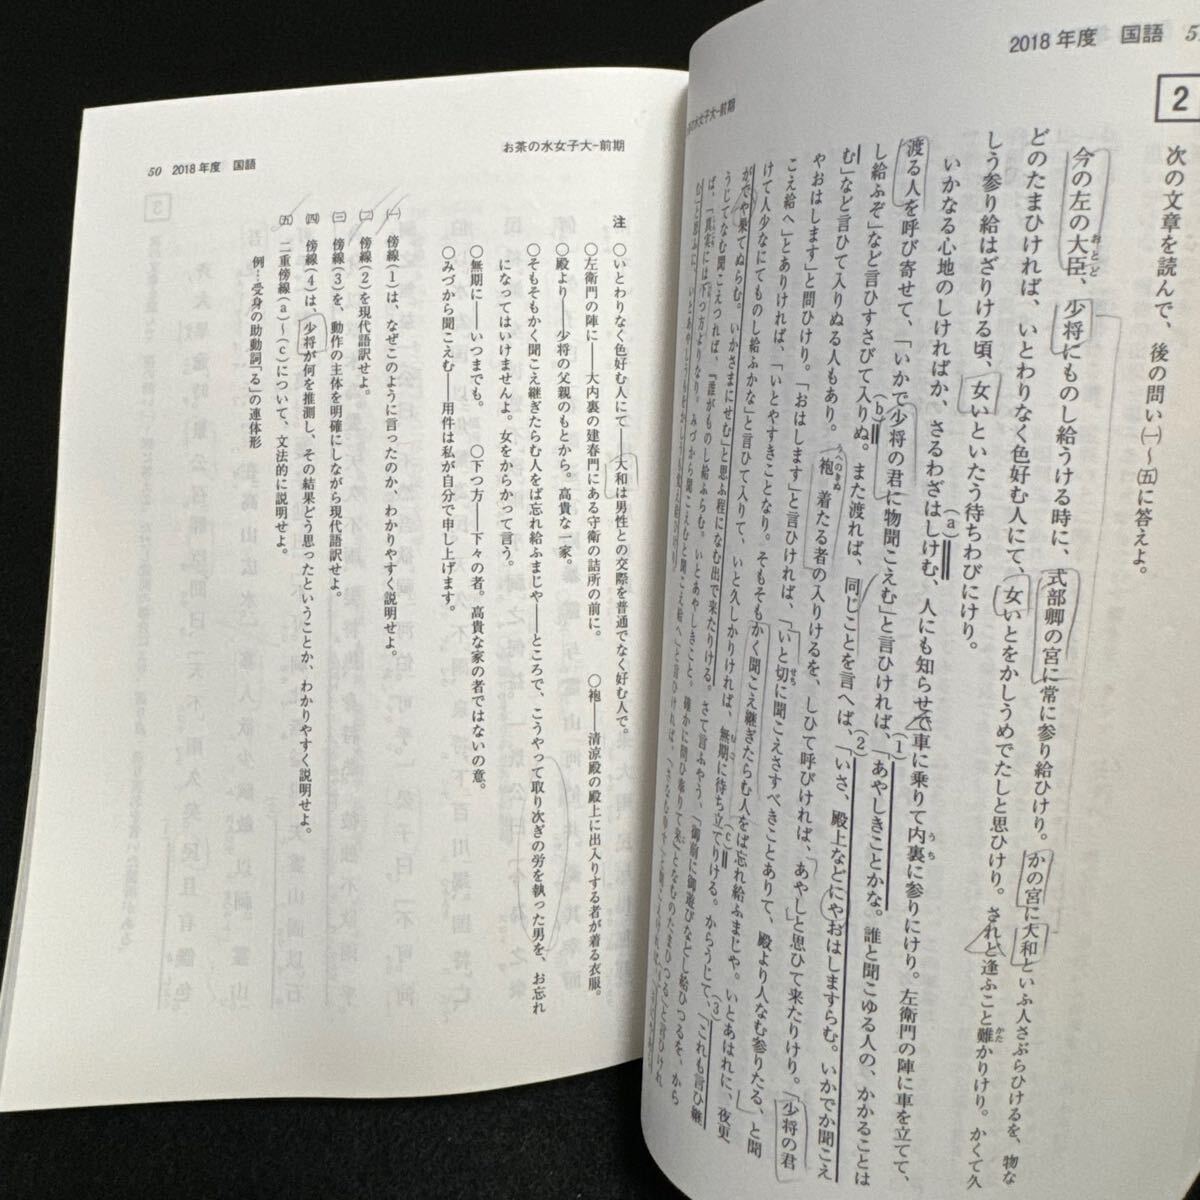 2018年度 国語
お茶の水女子大-前期
2
次の文章を読んで、後の問い㈠〜㈤に答えよ。
今の左の大臣、少将にものし給うける時に、式部卿の宮に常に参り給ひけり。かの宮に大和といふ人さぶらひけるを、物な
どのたまひければ、いとわりなく色好む人にて、女いとをかしうめでたしと思ひけり。されど逢ふこと難かりけり。かくて久
しう参り給はざりける頃、女いといたう待ちわびにけり。
いかなる心地のしければか、さるわざはしけむ、人にも知らせで車に乗りて内裏に参りにけり。左衛門の陣に車を立てて、
渡る人を呼び寄せて、「いかで少将の君に物聞こえむ」と言ひければ、「あやしきことかな。誰と聞こゆる人の、かかることは
し給ふぞ」など言ひすさびて入りぬ。また渡れば、同じことを言へば、「いさ、殿上などにやおはしますらむ。いかでか聞こえ
む」など言ひて入りぬる人もあり。袍着たる者の入りけるを、しひて呼びければ、あやしと思ひて来たりけり。「少将の君
やおはします」と問ひけり。「おはします」と言ひければ、「いと切に聞こえさすべきことありて、殿より人なむ参りたる、と聞
こえ給へ」とありければ、「いとやすきことなり。そもそもかく聞こえ継ぎたらむ人をば忘れ給ふまじや。いとあはれに、夜更
けて人少なにてものし給ふかな」と言ひて入りて、いと久しかりければ、無期に待ち立てりける。からうじて、「これも言ひ継
がでや果てぬらむ。いかさまにせむ」と思ふ程になむ出で来たりける。さて言ふやう、「御前に御遊びなどし給ひつるを、から
うじてなむ聞こえつれば、『誰がものし給ふならむ。いとあやしきこと。確かに問ひ奉りて来』となむのたまひつる」と言ひけれ
ば、「真実には下つ方よりなり。みづから聞こえむと聞こえ給へ」と言ひければ、
50 2018年度 国語
お茶の水女子大-前期
注 ○いとわりなく色好む人にて——大和は男性との交際を普通でなく好む人で。
○左衛門の陣に——大内裏の建春門にある守衛の詰所の前に。 ○袍——清涼殿の殿上に出入りする者が着る衣服。
○殿より——少将の父親のもとから。高貴な一家。
○そもそもかく聞こえ継ぎたらむ人をば忘れ給ふまじや——ところで、こうやって取り次ぎの労を執った男を、お忘れ
になってはいけませんよ。女をからかって言う。
○無期に——いつまでも。 ○下つ方——下々の者。高貴な家の者ではないの意。
○みづから聞こえむ——用件は私が自分で申し上げます。
㈠ 傍線(1)は、なぜこのように言ったのか、わかりやすく説明せよ。
㈡ 傍線(2)を現代語訳せよ。
㈢ 傍線(3)を、動作の主体を明確にしながら現代語訳せよ。
㈣ 傍線(4)は、少将が何を推測し、その結果どう思ったということか、わかりやすく説明せよ。
㈤ 二重傍線(a)〜(c)について、文法的に説明せよ。
例…受身の助動詞「る」の連体形